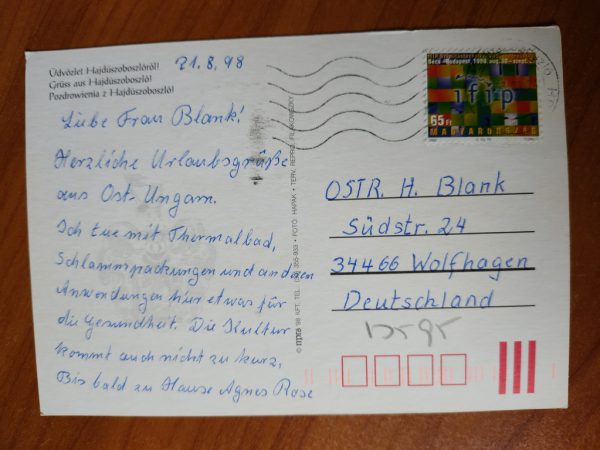 Üdvözlet Hajdúszoboszlóról!
Grüss aus Hajdúszoboszló!
Pozdrowienia z Hajdúszoboszló!
21.8.98
Liebe Frau Blank!
Herzliche Urlaubsgrüße
aus Ost-Ungarn.
Ich tue mit Thermalbad,
Schlammpackungen und anderen
Anwendungen hier etwas für
die Gesundheit. Die Kultur
kommt auch nicht zu kurz.
Bis bald zu Hause Agnes Rose
Bécs-Budapest, 1998. aug.
ifip
65Ft
MAGYARORSZÁG
OSTR. H. Blank
Südstr. 24
34466 Wolfhagen
Deutschland